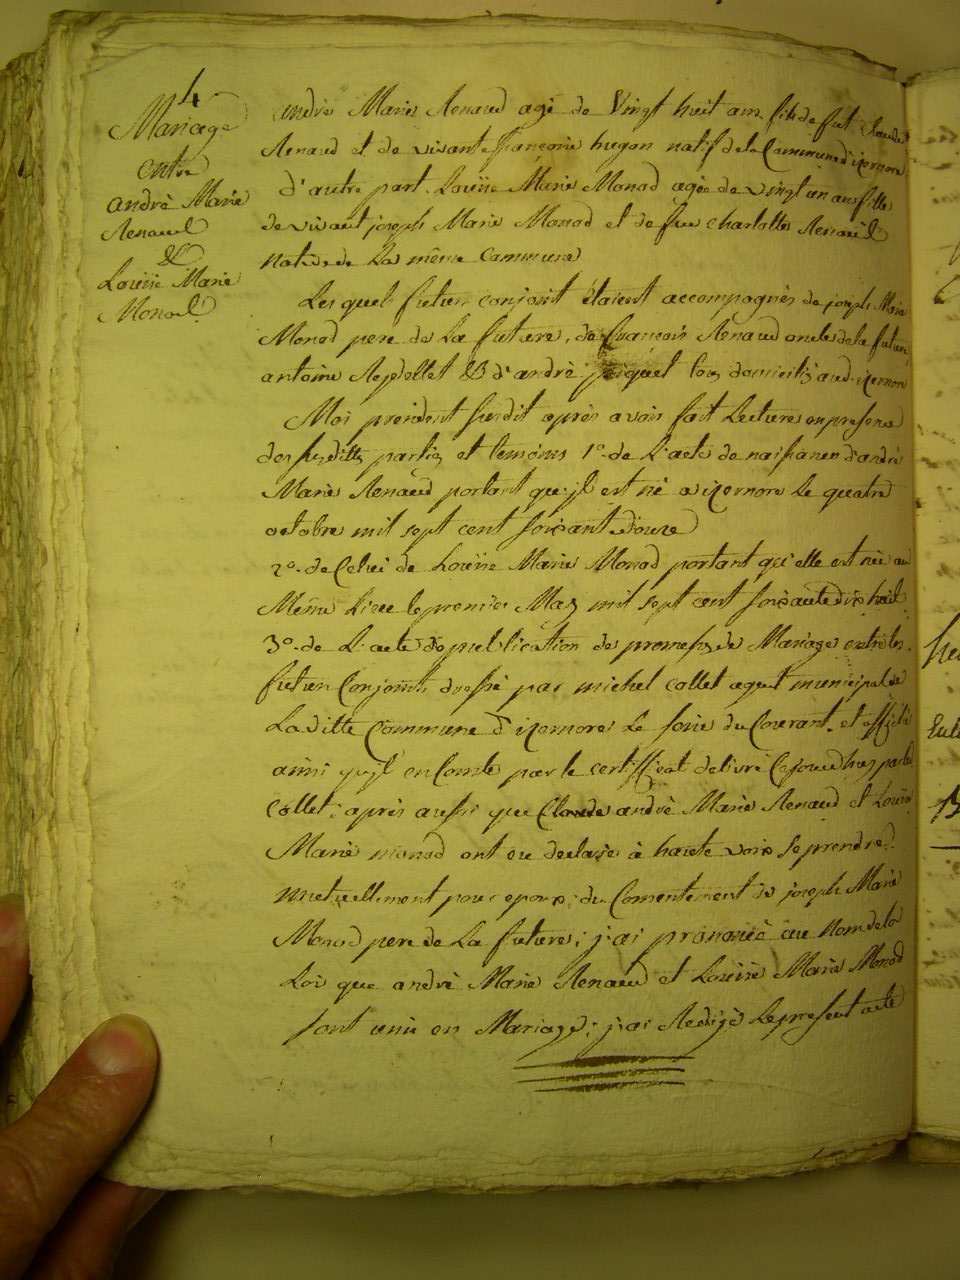 4
Mariage
entre
andrè Marie
Renaud
&
Louise Marie
Monod
andrè Marie Renaud agè de Vingt huit ans fils de fut Claude
Renaud et de vivante françoise hugon natif de la Commune d'izernore
d'autre part. Louise Marie Monod agée de vingt un ans fille
de vivant joseph Marie Monod et de fue charlotte Renaud
native de La même Commune
Lesquel futur conjoint étaient accompagnés de joseph Marie
Monod pere de La future, de françois Renaud oncle de la future
antoine & d'andrè tous domiciliés audit izernore
Moi president susdit après avoir fait Lecture en presence
des susdittes parties et temoins 1º. de L'acte de naissance d'andrè
Marie Renaud portant qu'jl est nè a izernore Le quatre
octobre mil sept cent soixant d'ouze
2º. de Celui de Louise Marie Monod portant qu'elle est nèe au
Même Lieu le premier May mil sept cent soixante dix huit
3º. de L'acte de publication de promesse de Mariage entre les
futur Conjoints dressé par michel collet agent municipal de
La ditte Commune d'izernore Le du Courant. et affiché
ainsi qu'jl en Conste par le certifficat delivré Cejourdhuy par led.
Collet; après aussi que andrè Marie Renaud et Louise
Marie monod ont eu declaré à haute voix se prendre
mutuellement pour epoux; du Consentement de joseph Marie
Monod pere de La future; j'ai prononcè au Nom de la
Loi que andrè Marie Renaud et Louise Marie Monod
sont unis en Mariage; j'ai Redigè Le present acte